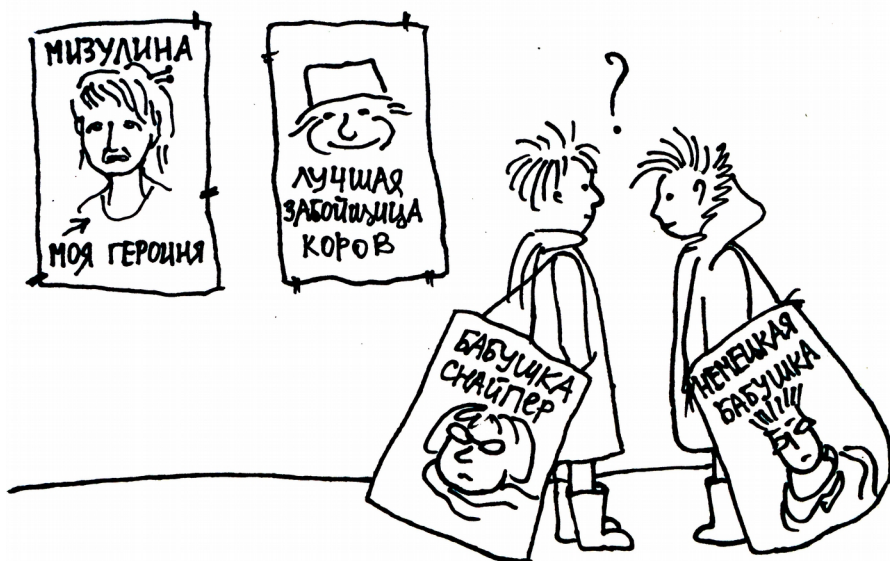 МИЗУЛИНА
МОЯ ГЕРОИНЯ
ЛУЧШАЯ
ЗАБОЙЩИЦА
КОРОВ
?
БАБУШКА
СНАЙПЕР
НЕМЕЦКАЯ
БАБУШКА